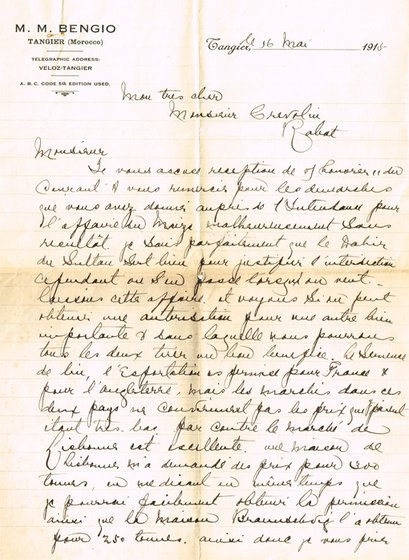 M. M. BENGIO
TANGIER (Morocco)
TELEGRAPHIC ADDRESS:
VELOZ-TANGIER
A. B. C. CODE 5th EDITION USED.
Tangier, le 16 Mai 1915
Mon tres cher
Monsieur Crevolin
Rabat
Monsieur
Je vous accuse reception de v/ honorée 11 du
Courant & vous remercie pour les demarches
que vous avez donner aupres de l'Intendance pour
l'affaire du Maiz, malheureusement sans
resultat, je sais parfaitement que le Dahir
du Sultan est bien pour justifier l'interdiction
cependant on s'en passe lorsqu'on veut.
Laissons cette affaire, et voyons si on peut
obtenir une autorisation pour une autre bien
importante & dans laquelle nous pourrons
tous les deux tirer un bon benefice. La Semence
de lin, l'Exportation est permise pour France &
pour l'Angleterre, mais les marchés dans ces
deux pays ne conviennent pas les prix
etant tres bas, par contre le marché de
Lisbonne est excellente, une maison de
Lisbonne m'a demandé des prix pour 300
tonnes, en me disant en même temps que
je pourrai facilement obtenir la permission
ainsi que la maison Braunschvig l'a obtenu
pour 250 tonnes. ainsi donc je vous prie